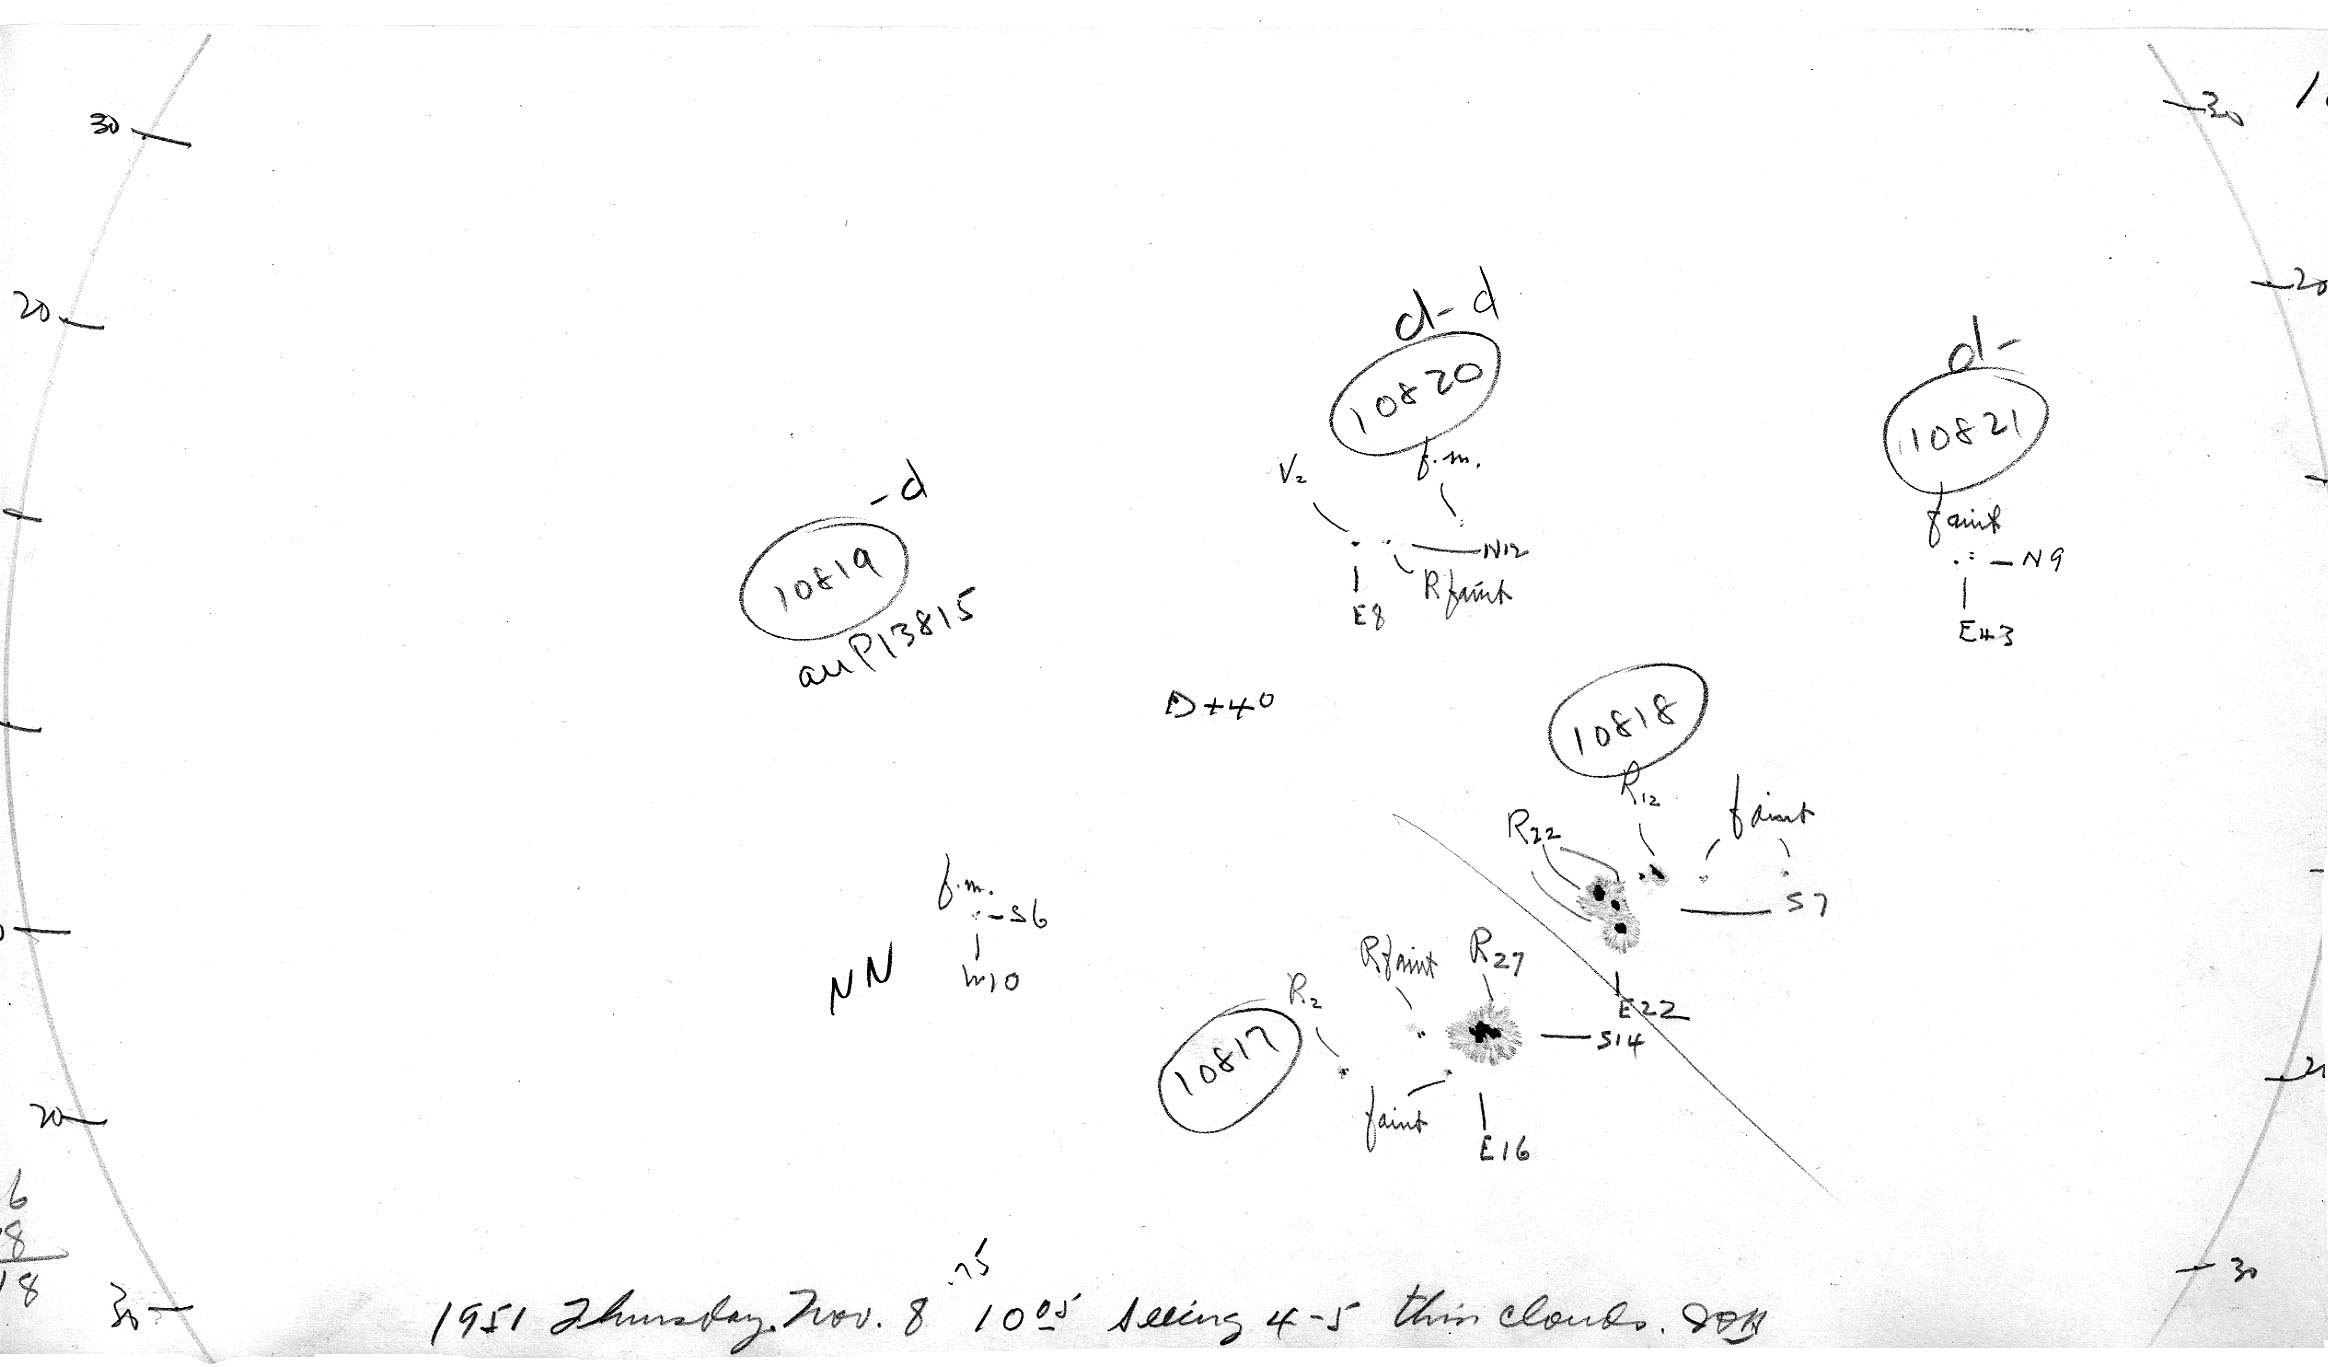 30
30
20
20
d-d
10820
d-
10821
V2
f.m.
faint
-d
10819
N12
R faint
N9
E8
E43
D+40
10818
R12
faint
R22
f.m.
S6
S7
W10
NN
R faint
R27
E22
R2
10817
S14
20
faint
E16
6
8
18
.75
30
30
1951 Thursday. Nov. 8 10 05 Seeing 4-5 thin clouds.